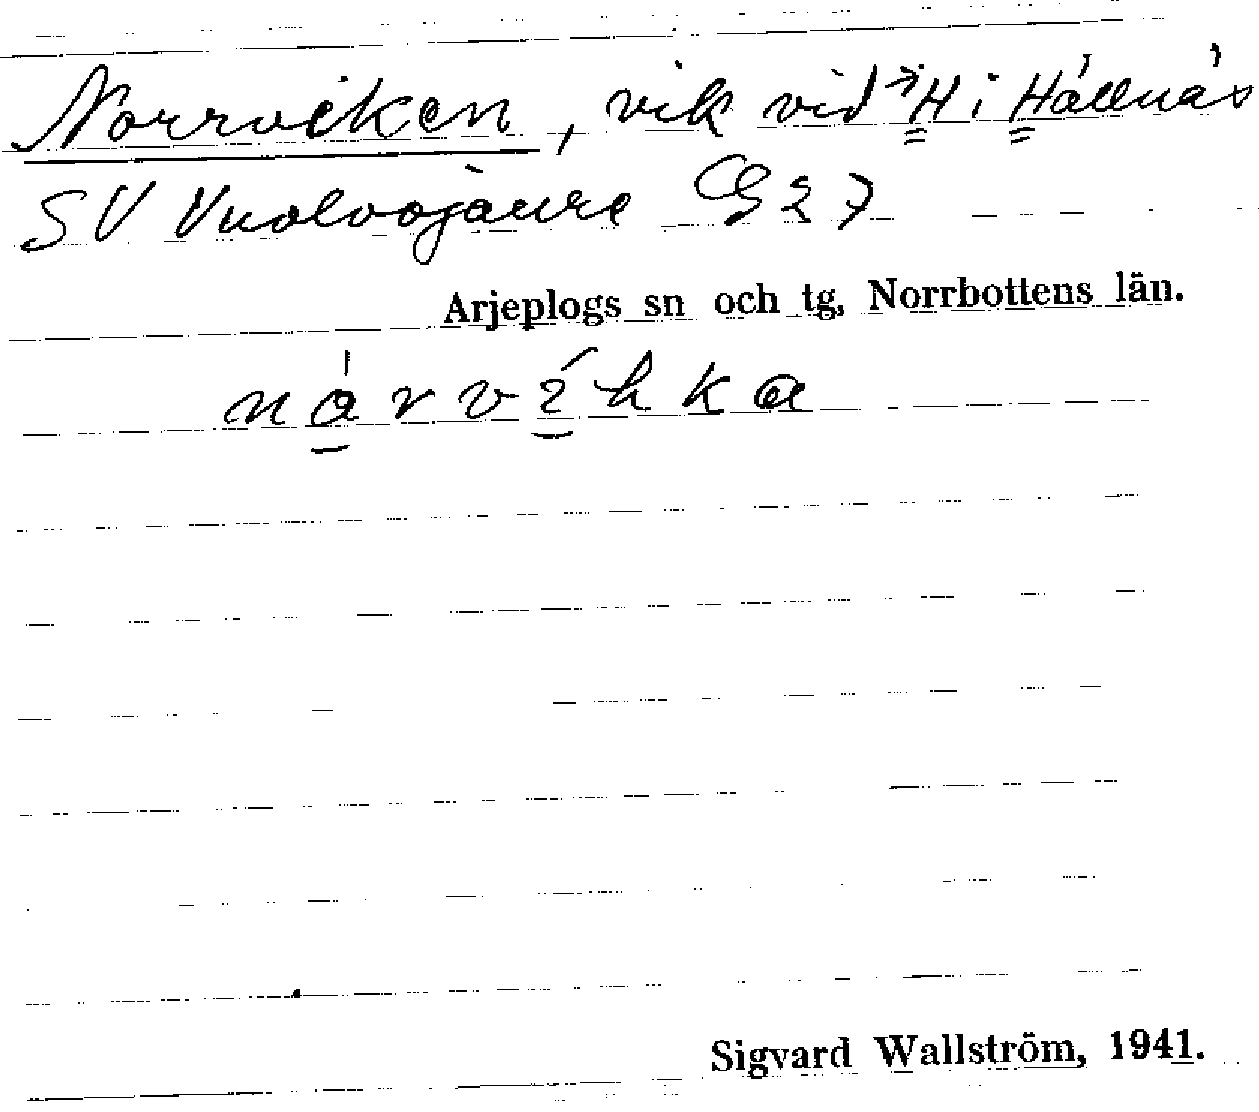 Norrviken, vik vid →H i Hållnäs
SV Vuolvojaure G 27
Arjeplogs sn och tg, Norrbottens län.
Sigvard Wallström, 1941.